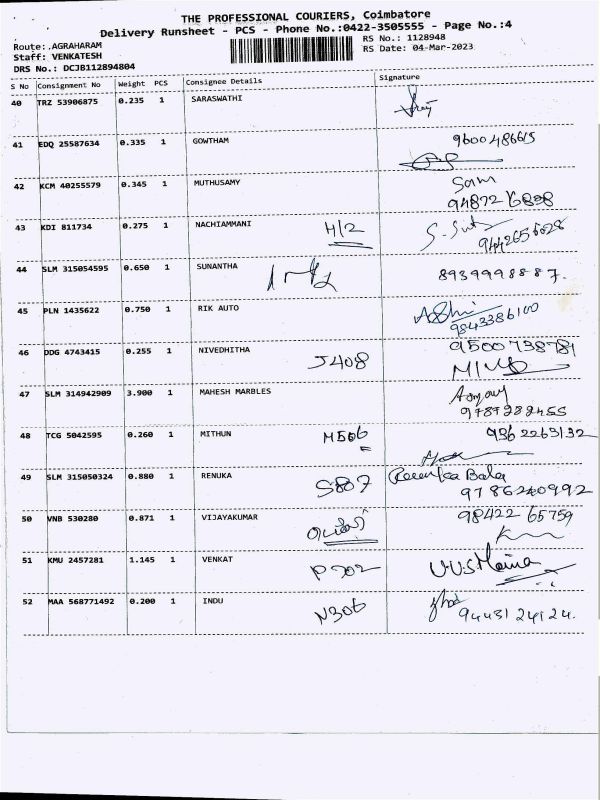 THE PROFESSIONAL COURIERS, Coimbatore
Delivery Runsheet - PCS - Phone No.:0422-3505555 - Page No.:4
Route:.AGRAHARAM
RS No.: 1128948
Staff: VENKATESH
RS Date: 04-Mar-2023
DRS No.: DCJB112894804
S No Consignment No Weight PCS Consignee Details Signature
40 TRZ 53906875 0.235 1 SARASWATHI
41 EDQ 25587634 0.335 1 GOWTHAM
42 KCM 40255579 0.345 1 MUTHUSAMY Sam
43 KDI 811734 0.275 1 NACHIAMMANI H/2
9442656628
44 SLM 315054595 0.650 1 SUNANTHA 8939998887.
45 PLN 1435622 0.750 1 RIK AUTO
9843386100
46 DDG 4743415 0.255 1 NIVEDHITHA J408 9500738781
47 SLM 314942909 3.900 1 MAHESH MARBLES
9787282455
48 TCG 5042595 0.260 1 MITHUN M506 9362263132
49 SLM 315050324 0.880 1 RENUKA S807 Renuka Bala
9786240992
50 VNB 530280 0.871 1 VIJAYAKUMAR 98422 65759
51 KMU 2457281 1.145 1 VENKAT P202
52 MAA 568771492 0.200 1 INDU N306
9443124124.